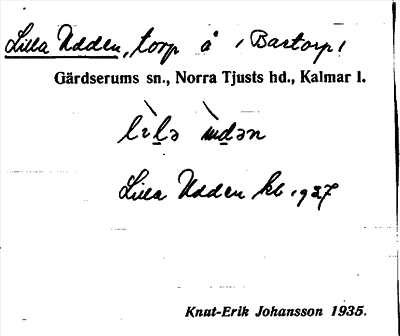 Lilla Udden, torp å (Bastorp)
Gärdserums sn., Norra Tjusts hd., Kalmar l.
Lilla Udden kb 1927
Knut-Erik Johansson 1935.